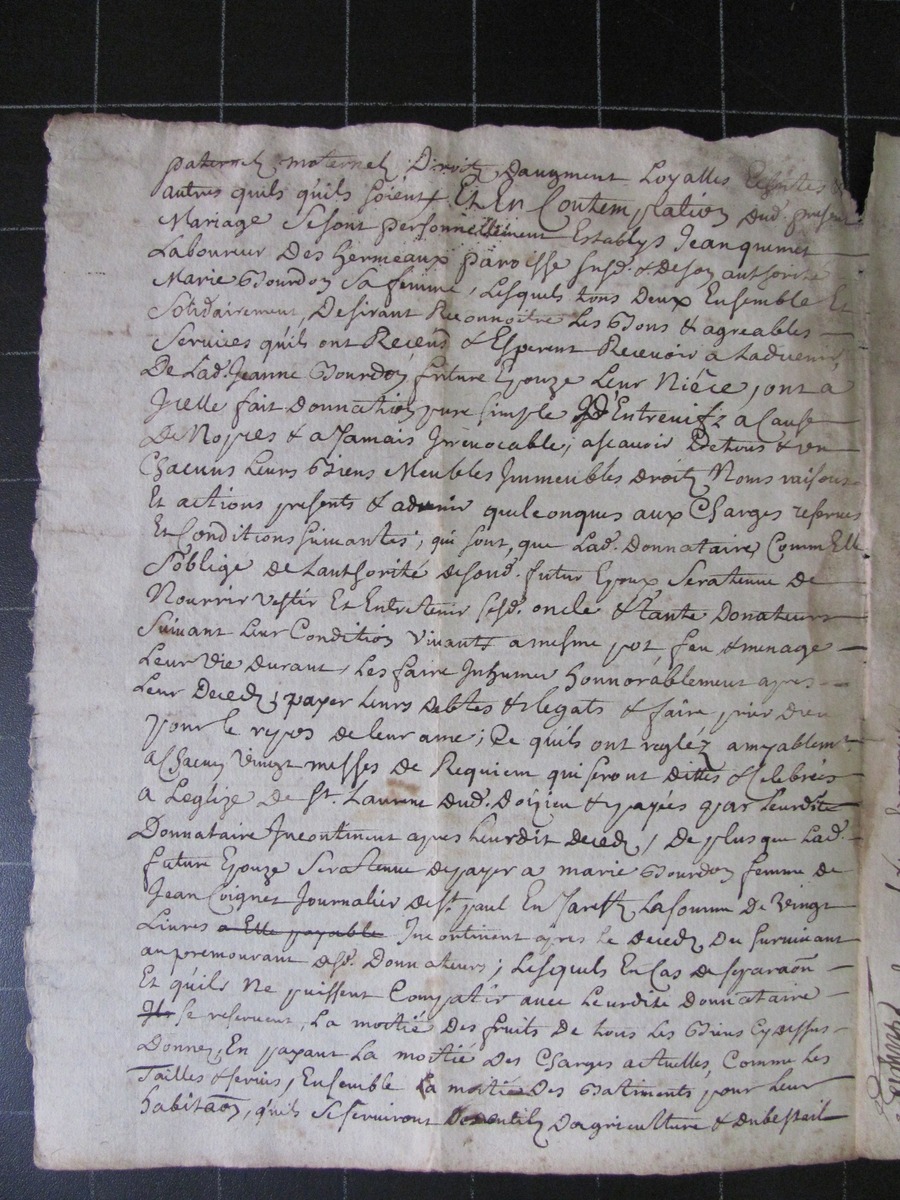 paternels maternels, Droits Daugment Loyalles Echutes &
autres quils quils soient Et En Contemplation dud. present
Mariage Se sont personnellement Establys Jean quemet
Laboureur Des hermeaux paroisse susd. & de son authorité
Marie Bourdon Sa femme, Lesquels tous Deux Ensemble Et
Solidairement, Desirant Reconnoitre Les Bons & agreables
Services quils ont Recéus & Esperent Recevoir a Ladvenir
De Lad. Jeanne Bourdon future Epouze Leur Niéce, ont a
Jcelle fait Donnation pure simple D'Entrevifz a Cause
De Nopces & a Jamais Jrrevocable; ascavoir De tous & un
Chacuns Leurs Biens Meubles Jmmeubles Droits Noms raisons
Et actions presents & advenir quelconques aux Charges reserves
Et Conditions suivantes; qui sont, que Lad. Donnataire, Comm Elle
S'oblige de Lauthorité de sond. futur Epoux Sera tenue de
Nourrir vestir Et Entretenir sesd. oncle & tante Donateurs
suivant Leur Condition vivants a mesme pot feu & menage
Leur vie durant, Les faire Jnhumer honnorablement apres
Leur Deceds; payer Leurs debtes & legats & faire prier dieu
pour le repos de leur ame; Ce quils ont reglez amyablemt.
a Chacun vingt messes de Requiem qui seront dittes & Celebrées
a Leglize De St. Laurent Dud. Doizieu & payées par Leurdite
Donnataire Jncontinent apres Leurdit deceds, De plus que Lad.
future Epouze Sera tenue de payer a marie Bourdon femme de
Jean Coignet Journalier de St. paul En Jarestz La somme De Vingt
Livres a Elle payable Jncontinent apres le deceds Du survivant
au premourant desd. Donnateurs; Lesquels En Cas de separaon
Et quils Ne puissent Compatir avec Leurdite Donnataire
Jls se reservent, La moitié Des fruits De tous Les Biens Cy dessus
Donnez, En payant La moitié Des Charges actuelles, Comme Les
Tailles & servis, Ensemble La moitié Des Batiments pour Leur
habitaon, quils Se serviront Des outils Dagriculture & du bestail